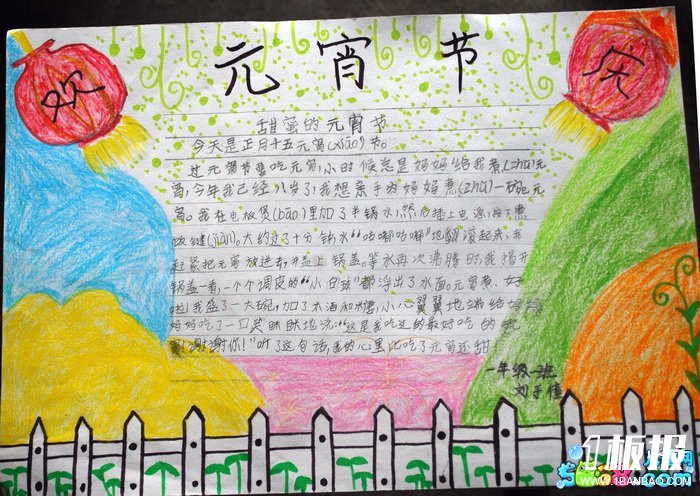 欢 元宵节 庆
甜蜜的元宵节
今天是正月十五元宵(xiāo)节。
过元宵节要吃元宵,小时候总是妈妈给我煮(zhǔ)元
宵,今年我已经八岁了,我想亲手为妈妈煮(zhǔ)一碗元
宵。我在电饭煲(bāo)里加了半锅水,然后插上电源,按下煮
饭键(jiàn)。大约过了十分钟水“咕嘟咕嘟”地翻滚起来,我
赶紧把元宵放进去,并盖上锅盖。等水再次沸腾时,我揭开
锅盖一看,一个个调皮的“小白球”都浮出了水面。元宵煮好
啦!我盛了一大碗,加了水和糖,小心翼翼地端给妈
妈妈吃了一口笑眯眯地说:“这是我吃过的最好吃的元
宵!谢谢你!”听了这句话,我的心里比吃了元宵还甜
一年级一班
刘子
板报网
WWW.1BANBAO.COM